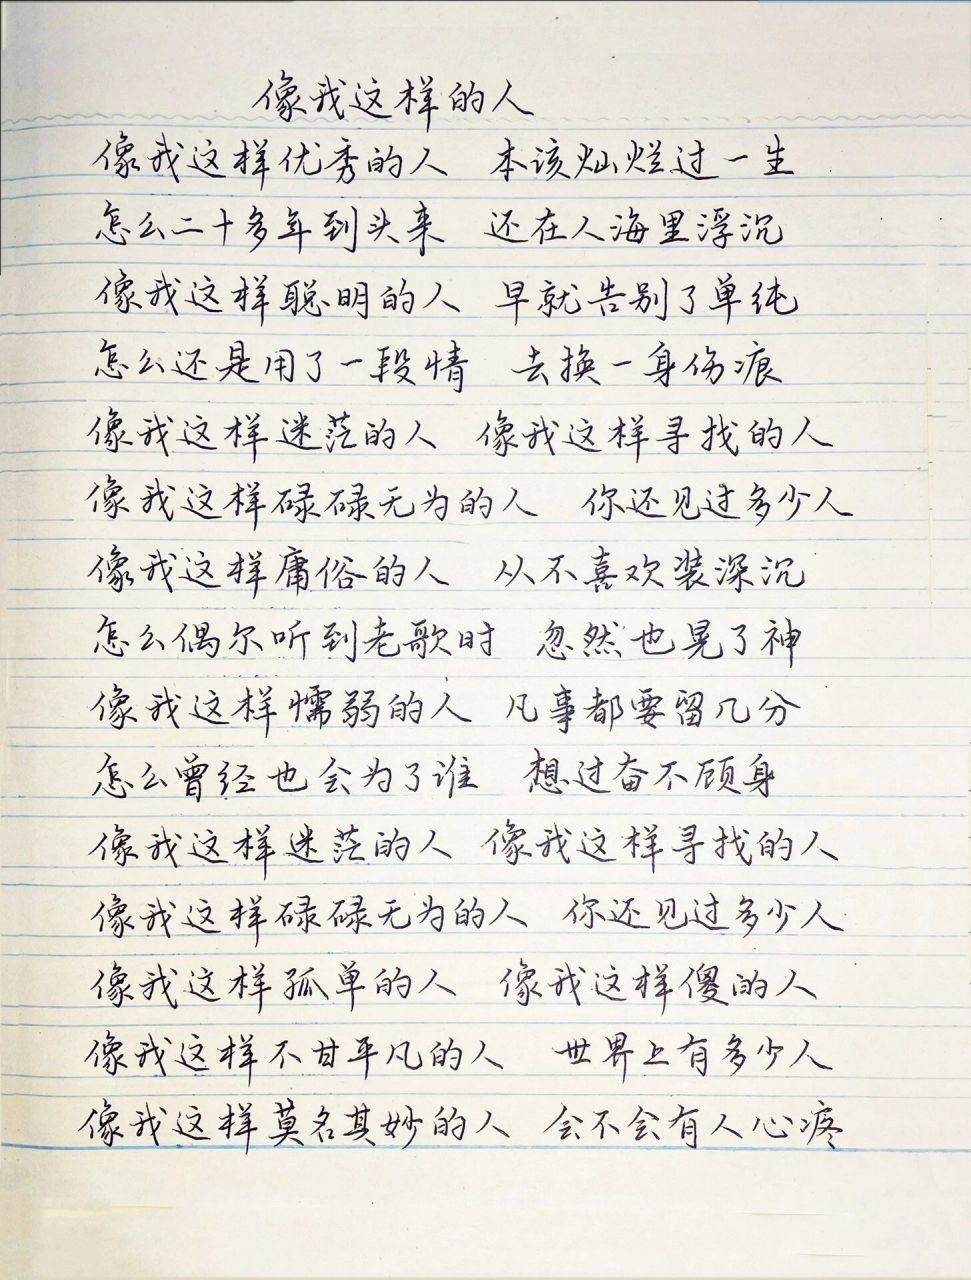 像我这样的人
像我这样优秀的人 本该灿烂过一生
怎么二十多年到头来 还在人海里浮沉
像我这样聪明的人 早就告别了单纯
怎么还是用了一段情 去换一身伤痕
像我这样迷茫的人 像我这样寻找的人
像我这样碌碌无为的人 你还见过多少人
像我这样庸俗的人 从不喜欢装深沉
怎么偶尔听到老歌时 忽然也晃了神
像我这样懦弱的人 凡事都要留几分
怎么曾经也会为了谁 想过奋不顾身
像我这样迷茫的人 像我这样寻找的人
像我这样碌碌无为的人 你还见过多少人
像我这样孤单的人 像我这样傻的人
像我这样不甘平凡的人 世界上有多少人
像我这样莫名其妙的人 会不会有人心疼